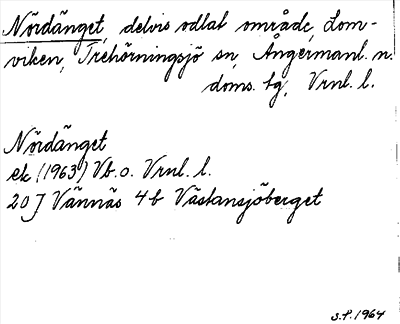 Nördänget, delvis odlat område, Lom-
viken, Trehörningsjö sn, Ångermanl. n.
doms. tg, Vrnl. l.
Nördänget
ek (1963) Vb. o. Vrnl. l.
20 J Vännäs 4 b Västansjöberget
S.F. 1964